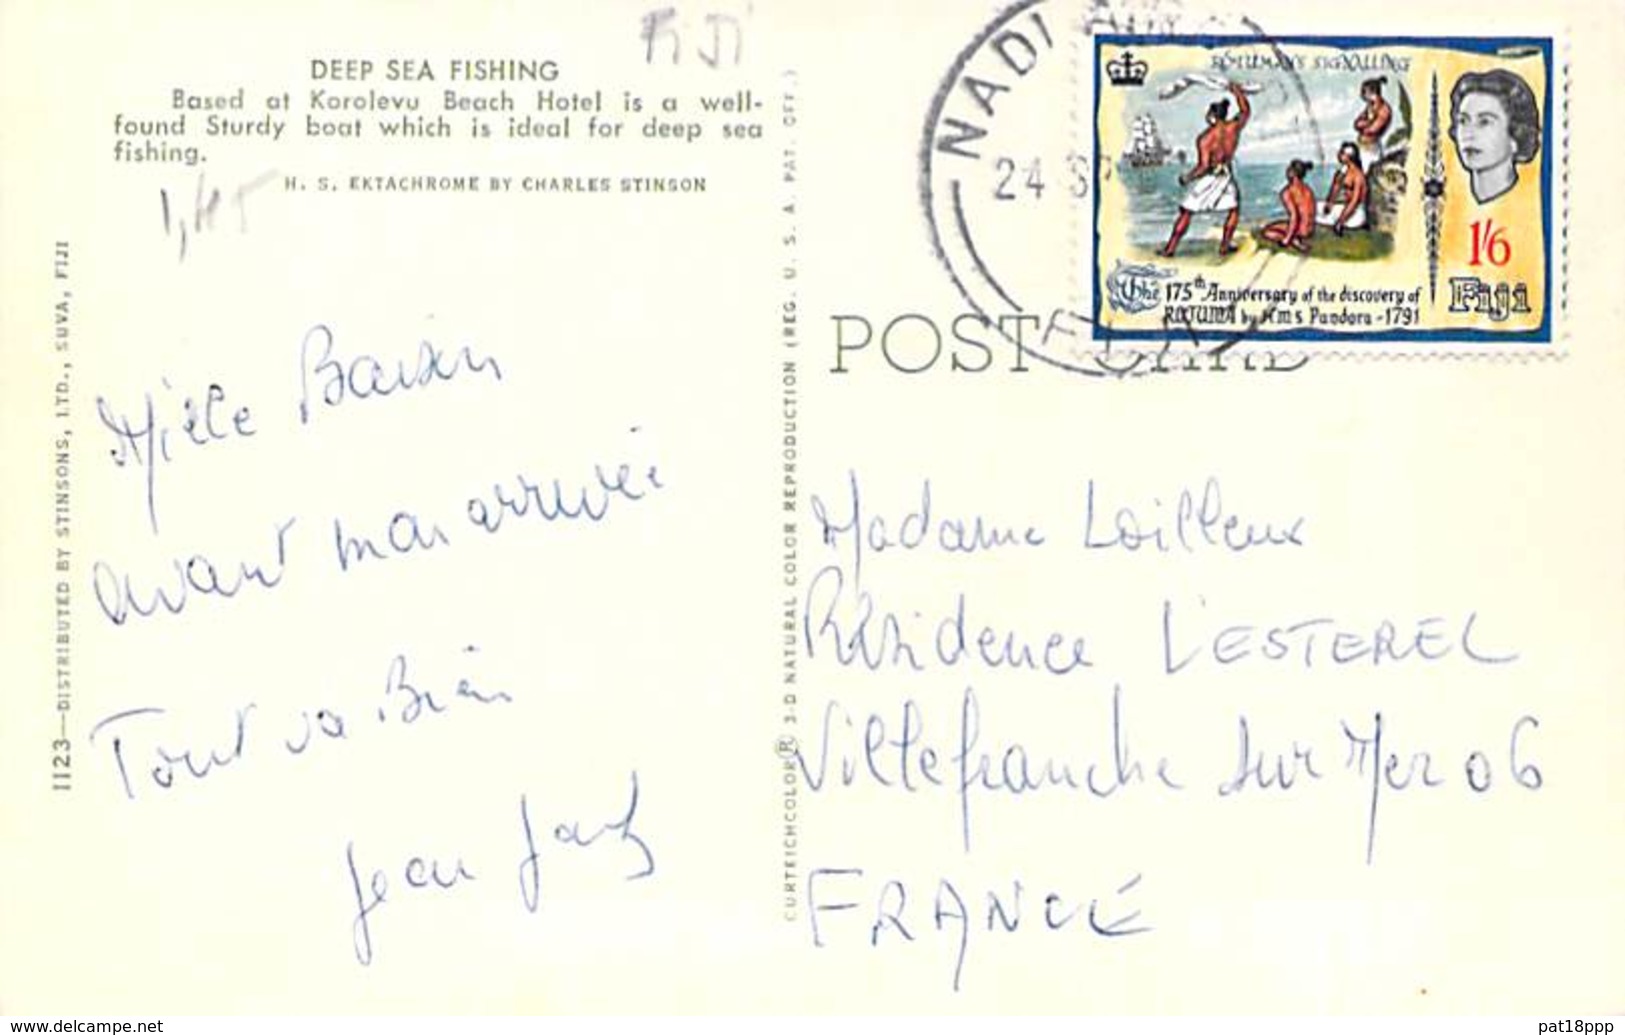 FiJi
DEEP SEA FISHING
Based at Korolevu Beach Hotel is a well-
found Sturdy boat which is ideal for deep sea
fishing.
H. S. EKTACHROME BY CHARLES STINSON
1,45
1123—DISTRIBUTED BY STINSONS, LTD., SUVA, FIJI
Mille Baisers
avant mon arrivée
Tout va Bien
Jean Jacq
CURTEICHCOLOR ® 3-D NATURAL COLOR REPRODUCTION (REG. U. S. A. PAT. OFF.)
NADI
24
FIJI
ROTUMANS SIGNALLING
1/6
Fiji
The 175th Anniversary of the discovery of
ROTUMA by H.M.S Pandora - 1791
POST CARD
Madame Loilleux
Résidence L'ESTEREL
Villefranche sur Mer 06
FRANCE
delcampe.net
pat18ppp